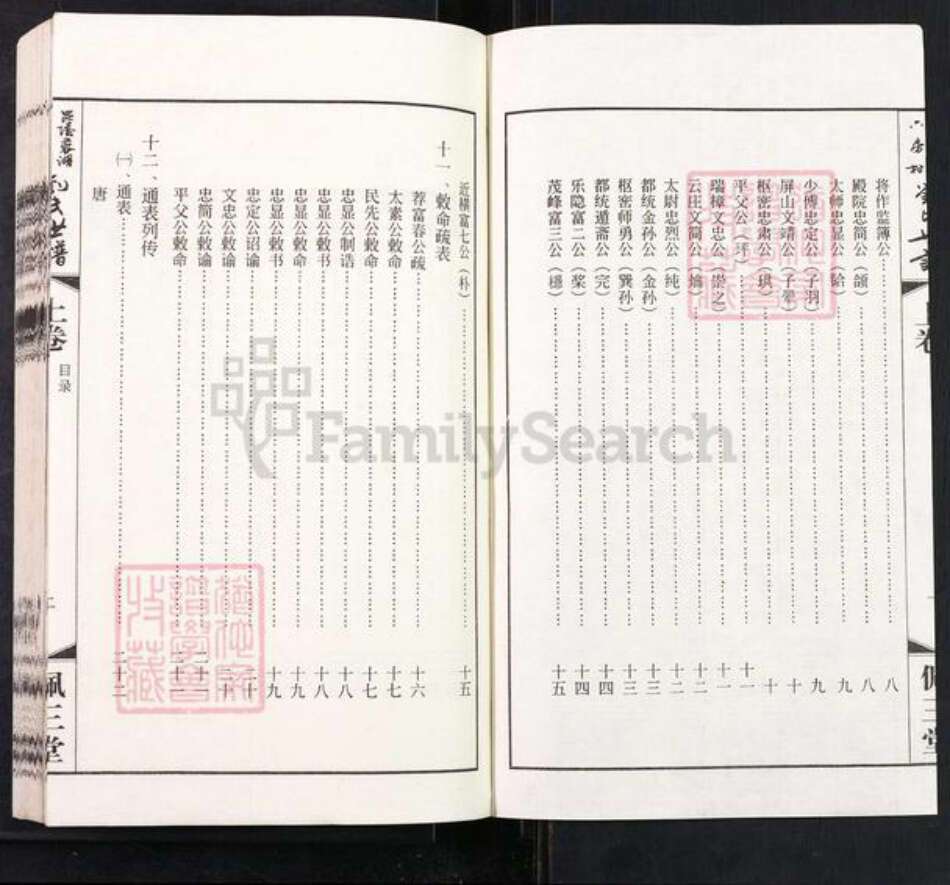 将作监簿公 八
殿院忠简公(颌) 八
太师忠显公(韐) 九
少傅忠定公(子羽) 九
屏山文靖公(子翚) 十
枢密忠肃公(珙) 十
平父公(玶) 十一
瑞樟文忠公(崇之) 十一
云庄文简公(爚) 十二
太尉忠烈公(纯) 十二
都统金孙公(金孙) 十三
枢密师勇公(巽孙) 十三
都统遁斋公(完) 十四
乐隐富二公(桨) 十四
茂峰富三公(樬) 十五
近横富七公(朴) 十五
十一、敕命疏表
荐富春公疏 十六
太素公敕命 十七
民先公敕命 十七
忠显公制诰 十八
忠显公敕书 十八
忠显公敕命 十九
忠显公敕书 十九
忠定公诏谕 二十
文忠公敕谕 二十
忠简公敕谕 二十一
平父公敕命 二十一
十二、通表列传
㈠、通表 二十二
唐
氏世谱
上卷
目录
佩三堂
FamilySearch